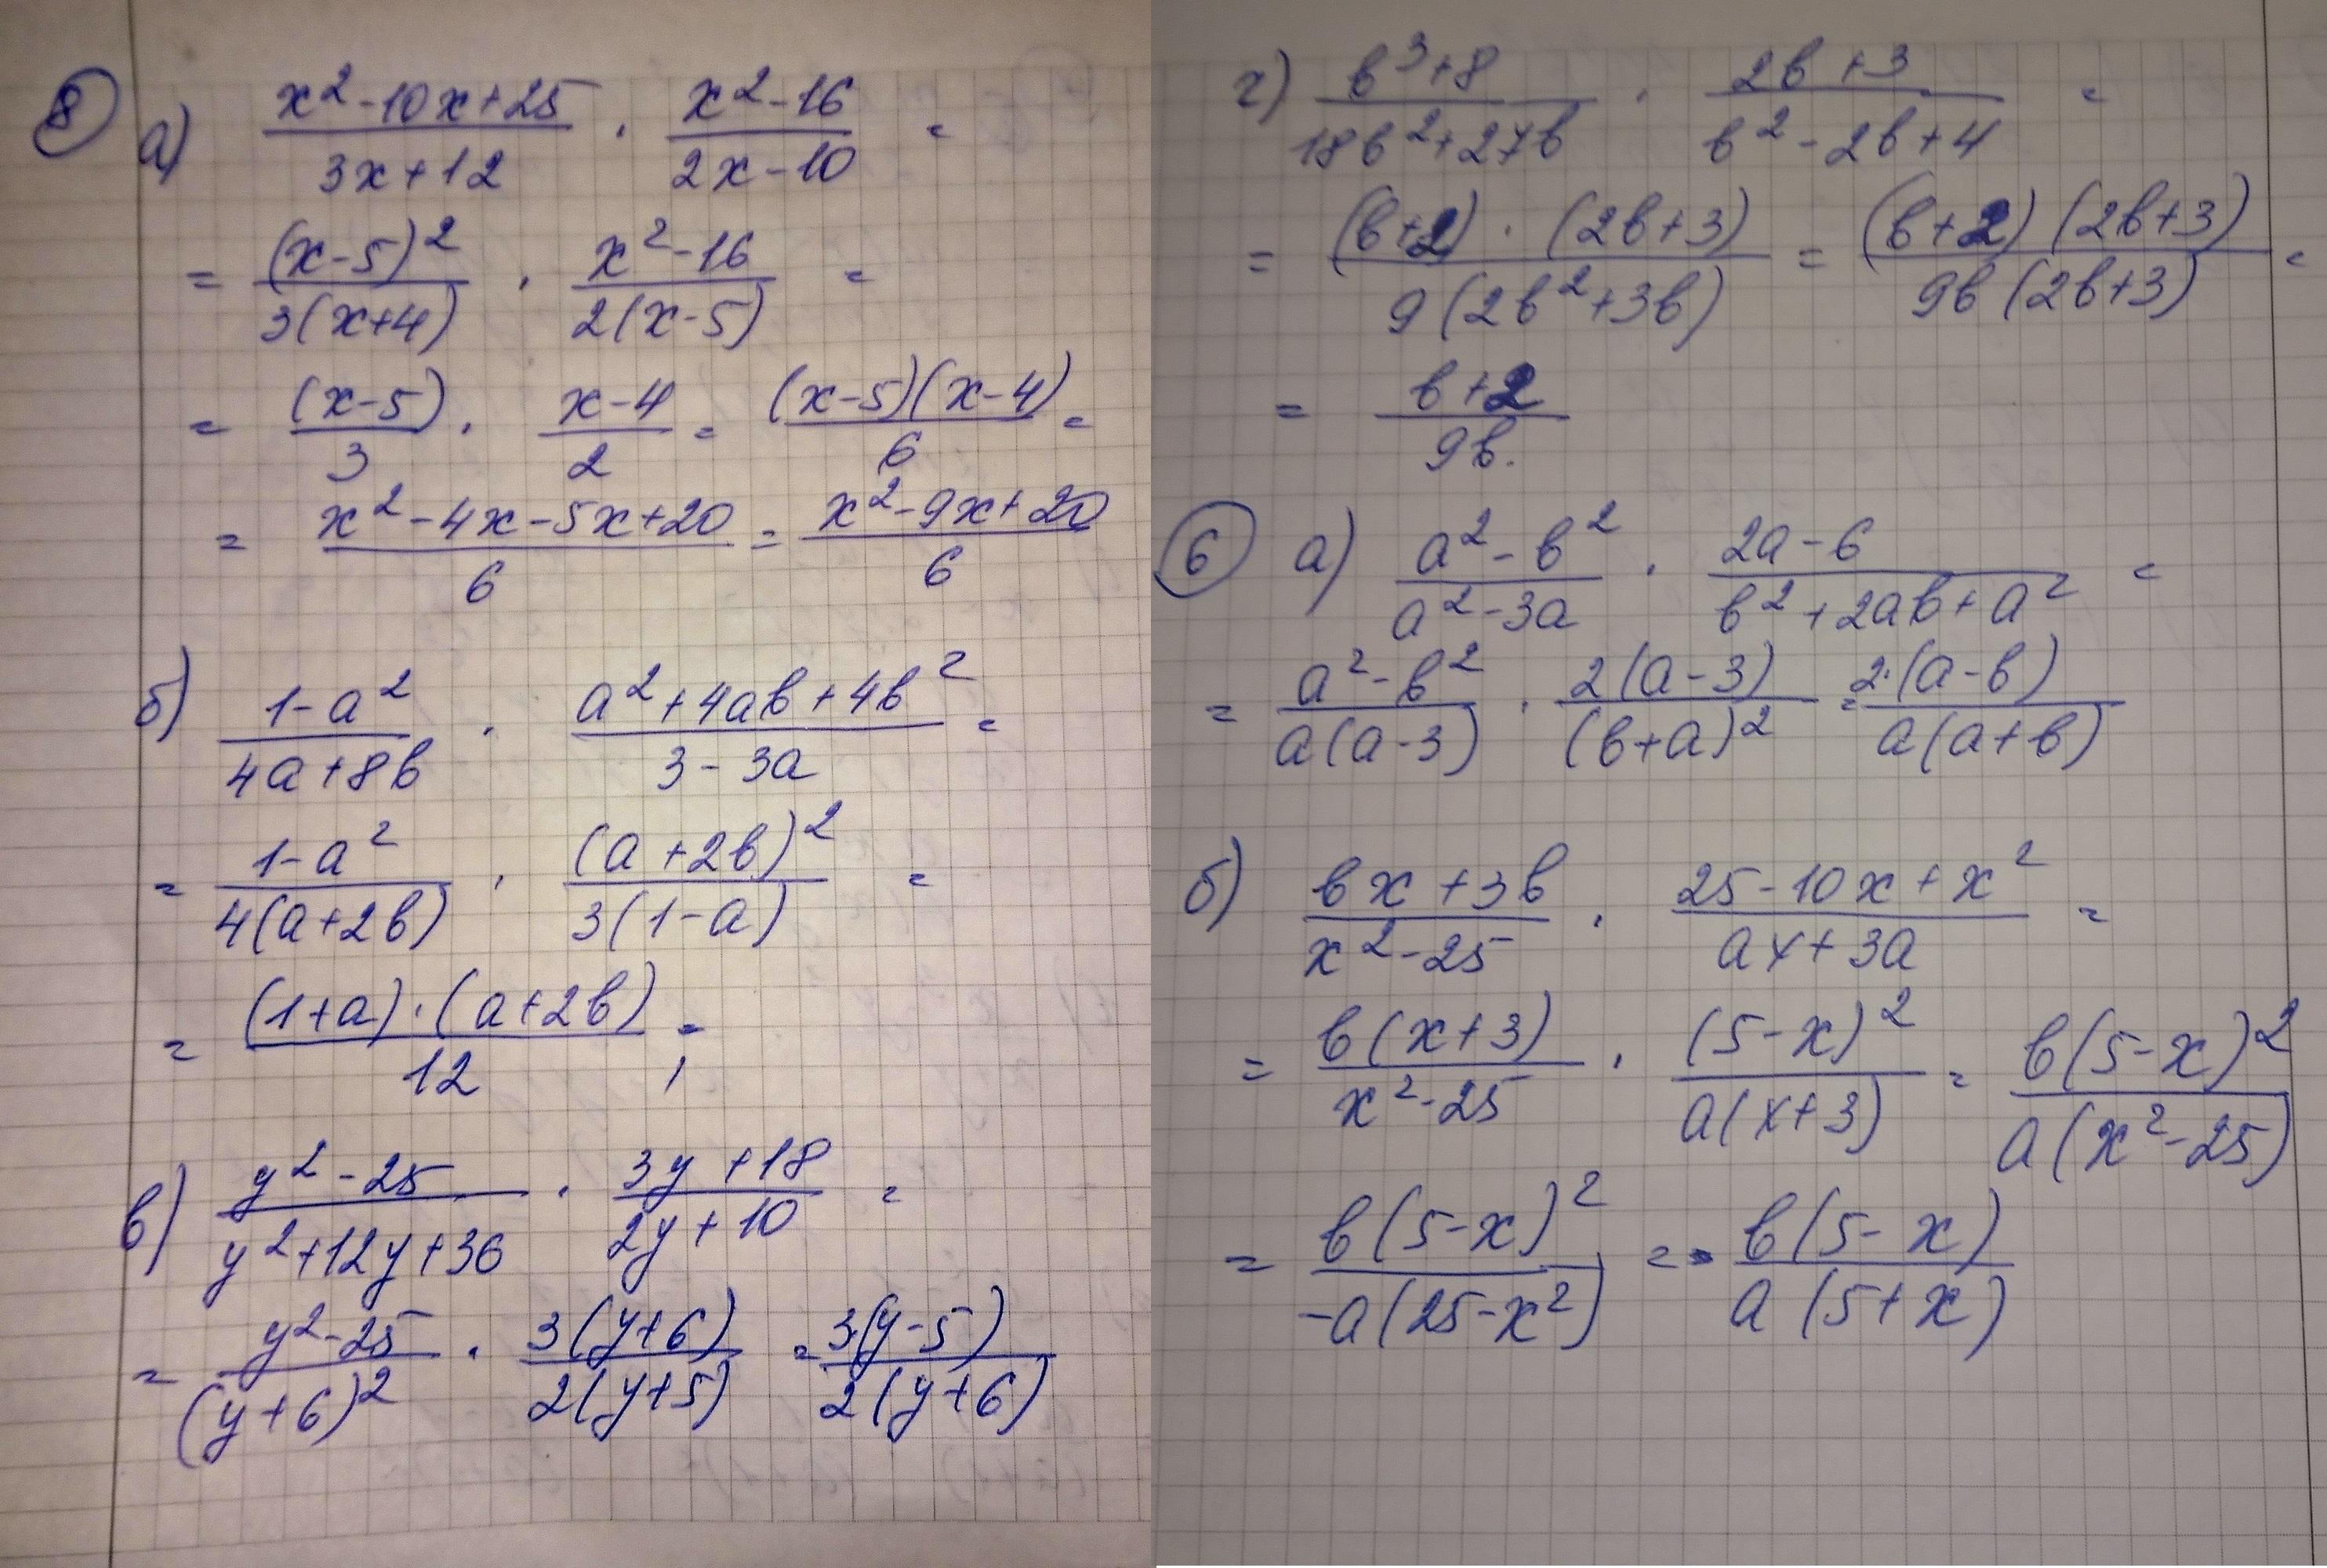 8 а) (x²-10x+25)/(3x+12) · (x²-16)/(2x-10) =
= (x-5)²/(3(x+4)) · (x²-16)/(2(x-5)) =
= (x-5)/3 · (x-4)/2 = ((x-5)(x-4))/6 =
= (x²-4x-5x+20)/6 = (x²-9x+20)/6
б) (1-a²)/(4a+8b) · (a²+4ab+4b²)/(3-3a) =
= (1-a²)/(4(a+2b)) · (a+2b)²/(3(1-a)) =
= ((1+a)·(a+2b))/12 =
в) (y²-25)/(y²+12y+36) · (3y+18)/(2y+10) =
= (y²-25)/(y+6)² · (3(y+6))/(2(y+5)) = (3·(y-5))/(2(y+6))
г) (b³+8)/(18b²+27b) · (2b+3)/(b²-2b+4) =
= ((b+2)·(2b+3))/(9(2b²+3b)) = ((b+2)(2b+3))/(9b(2b+3)) =
= (b+2)/(9b).
6 а) (a²-b²)/(a²-3a) · (2a-6)/(b²+2ab+a²) =
= (a²-b²)/(a(a-3)) · (2(a-3))/(b+a)² = (2·(a-b))/(a(a+b))
б) (bx+3b)/(x²-25) · (25-10x+x²)/(ax+3a) =
= (b(x+3))/(x²-25) · (5-x)²/(a(x+3)) = (b(5-x)²)/(a(x²-25))
= (b(5-x)²)/(-a(25-x²)) = - (b(5-x))/(a(5+x))